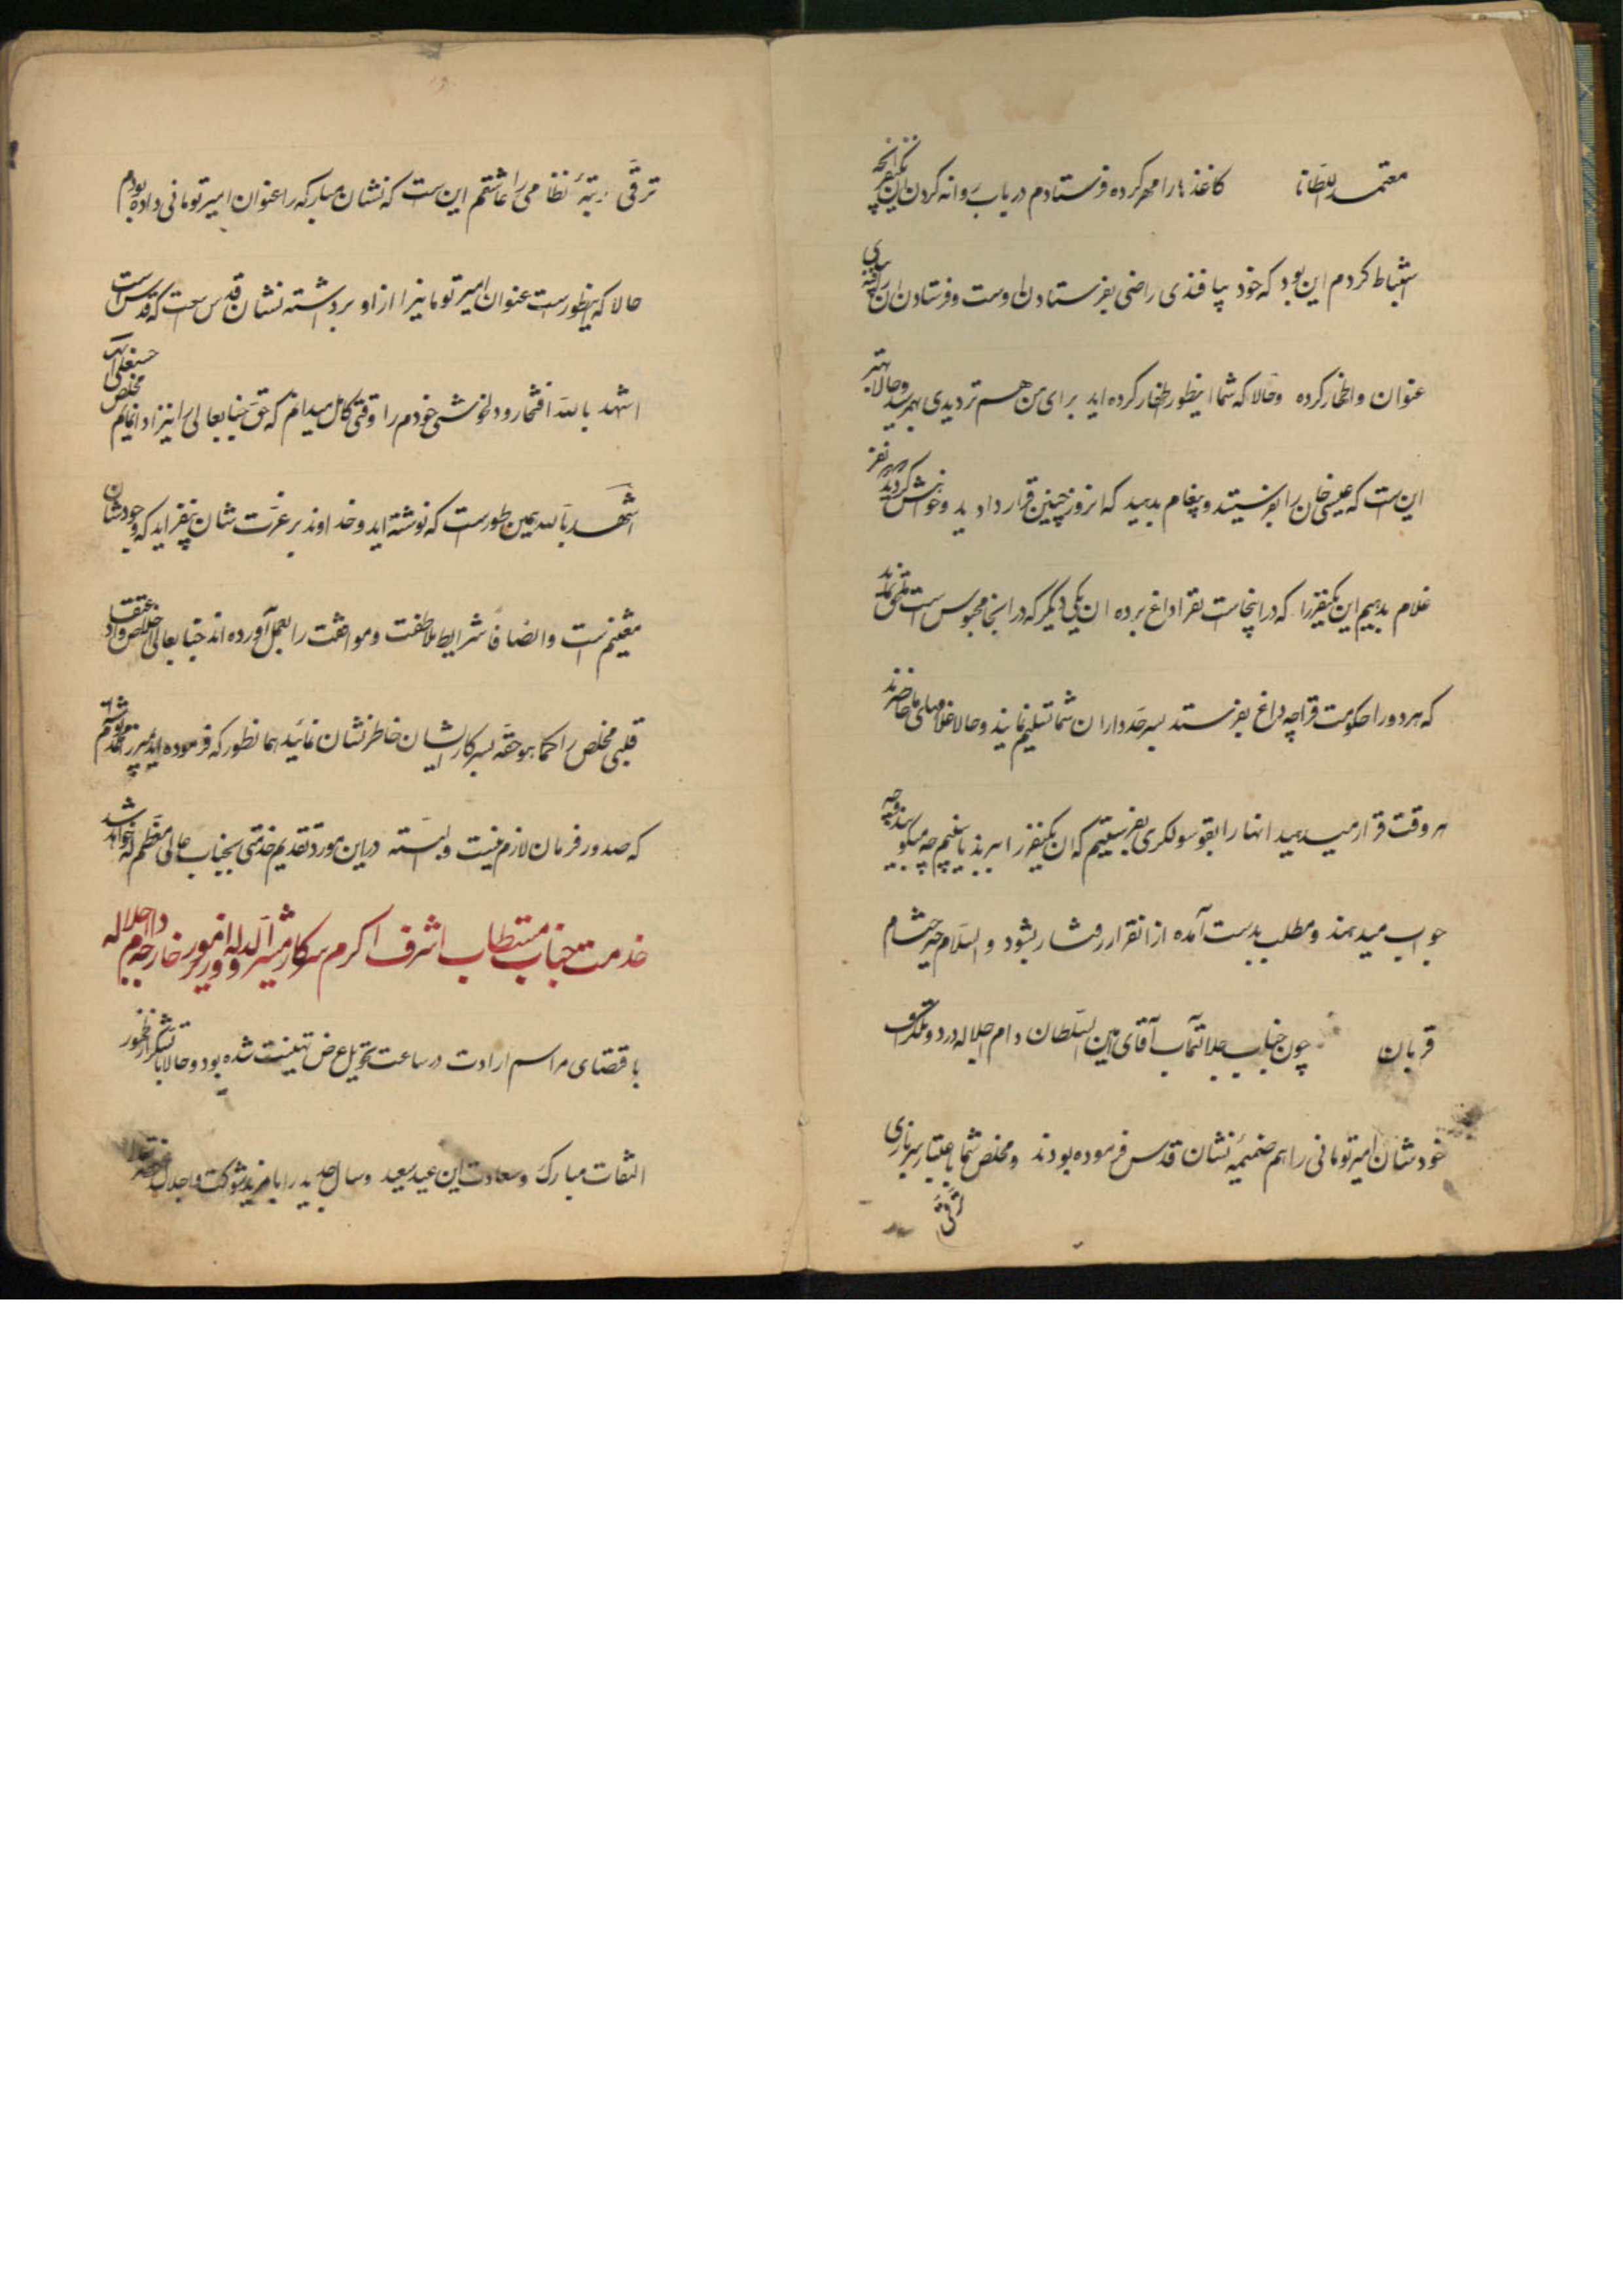 معتمد السلطانا کاغذها را مهر کرده فرستادم در باب روانه کردن این یکنفر آنچه
استنباط کردم این بود که خود پیافندی راضی بفرستادن اوست و فرستادن آن را
عنوان و اظهار کرده و حالا که شما اینطور اظهار کرده اید برای من هم تردیدی بهم رسید و حالا بهتر
این است که عیسی خان را بفرستید و پیغام بدهید که امروز چنین قرار دادید و خواهش کردید نفر
غلام بدهیم این یکنفر را که در اینجاست بقراداغ برده آن یکی دیگر که در آنجا محبوس است
که هر دو را حکومت قراچه داغ بفرستد بسرحدداران شما تسلیم نمایند و حالا غلامهای ما حاضرند
هر وقت قرار میدهید آنها را بقونسولگری بفرستیم که آن یکنفر را ببرند ببینیم چه میگویند و چه
جواب میدهند و مطلب بدست آمده از آنقرار رفتار بشود و السلام
قربان چون جناب جلالتمآب آقای امین السلطان دام اجلاله در دو تلگراف
خودشان امیرتومانی را هم ضمیمه نشان قدس فرموده بودند و مخلص شما باعتبار
ترقی رتبه نظامی را داشتم این است که نشان مبارکه را بعنوان امیرتومانی داده بودم
حالا که اینطور است عنوان امیرتومانیرا از او برداشته نشان قدس است که قدس است
اشهد بالله افتخار و دلخوشی خودم را وقتی کامل میدانم که حق جنابعالی را نیز ادا نمایم مخلص حسنعلی
اشهد بالله همین طور است که نوشته اید و خداوند بر عزت شان بیفزاید که وجودشان
مغتنم است و انصافاً شرایط ملاطفت و موافقت را بعمل آورده اند جنابعالی اخلاص و اعتقاد
قلبی مخلص را کما هو حقه بسرکار ایشان خاطرنشان نمائید همانطور که فرموده اید
که صدور فرمان لازم نیست و البته در این مورد تقدیم خدمتی بجناب عالی معظم له خواهد شد
خدمت جناب مستطاب اشرف اکرم سرکار مشیرالدوله وزیر امور خارجه دام اجلاله
باقتضای مراسم ارادت در ساعت تحویل عرض تهنیت شده بود و حالا با تشکر از ظهور
التفات مبارک و سعادت این عید سعید و سال جدید را با مزید شوکت و اجلال